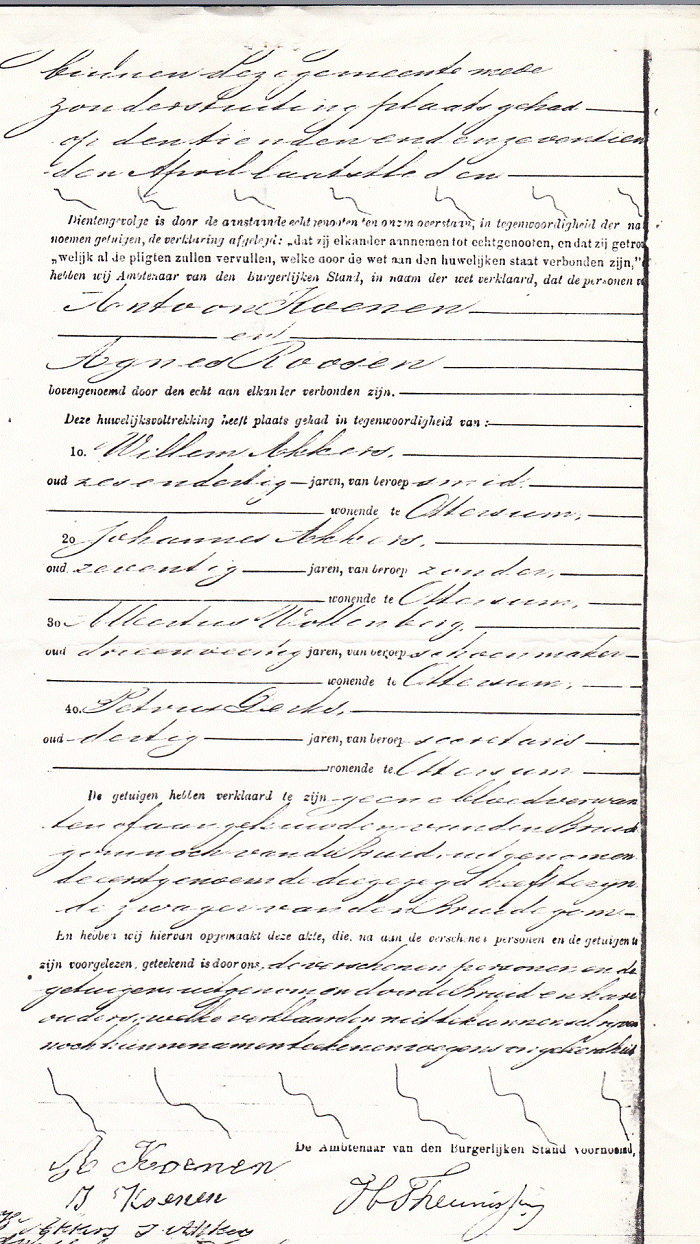 binnen deze gemeente mede
zonder stuiting plaats gehad
op den tienden en den zeventien
den April laatstleden
Dientengevolge is door de aanstaande echtgenooten ten onzen overstaan, in tegenwoordigheid der na
noemen getuigen, de verklaring afgelegd: „dat zij elkander aannemen tot echtgenooten, en dat zij getrou
„welijk al de pligten zullen vervullen, welke door de wet aan den huwelijken staat verbonden zijn,"
hebben wij Ambtenaar van den Burgerlijken Stand, in naam der wet verklaard, dat de personen v
Antoon Koenen
en
Agnes Roosen
bovengenoemd door den echt aan elkander verbonden zijn.
Deze huwelijksvoltrekking heeft plaats gehad in tegenwoordigheid van:
1o. Willem Akkers,
oud zesendertig jaren, van beroep smid,
wonende te Ottersum,
2o Johannes Akkers,
oud zeventig jaren, van beroep zonder,
wonende te Ottersum,
3o Albertus Wollenberg,
oud drieenveertig jaren, van beroep schoenmaker
wonende te Ottersum,
4o. Petrus Derks,
oud dertig jaren, van beroep secretaris
wonende te Ottersum
De getuigen hebben verklaard te zijn geene bloedverwan
ten of aangehuwden van den Bruid
gom noch van de Bruid, uitgenomen
de eerstgenoemde die gezegd heeft te zijn
de zwager van den Bruidegom
En hebben wij hiervan opgemaakt deze akte, die, na aan de verschenen personen en de getuigen te
zijn voorgelezen, geteekend is door ons, de verschenen personen en de
getuigen uitgenomen door de Bruid en hare
ouders, welke verklaarden niet te kunnen schrijven
noch hunnen namen teekenen wegens ongeleerdheid
De Ambtenaar van den Burgerlijken Stand voornoemd,
A Koenen
J Koenen
H Theunissen
Akkers J Akkers